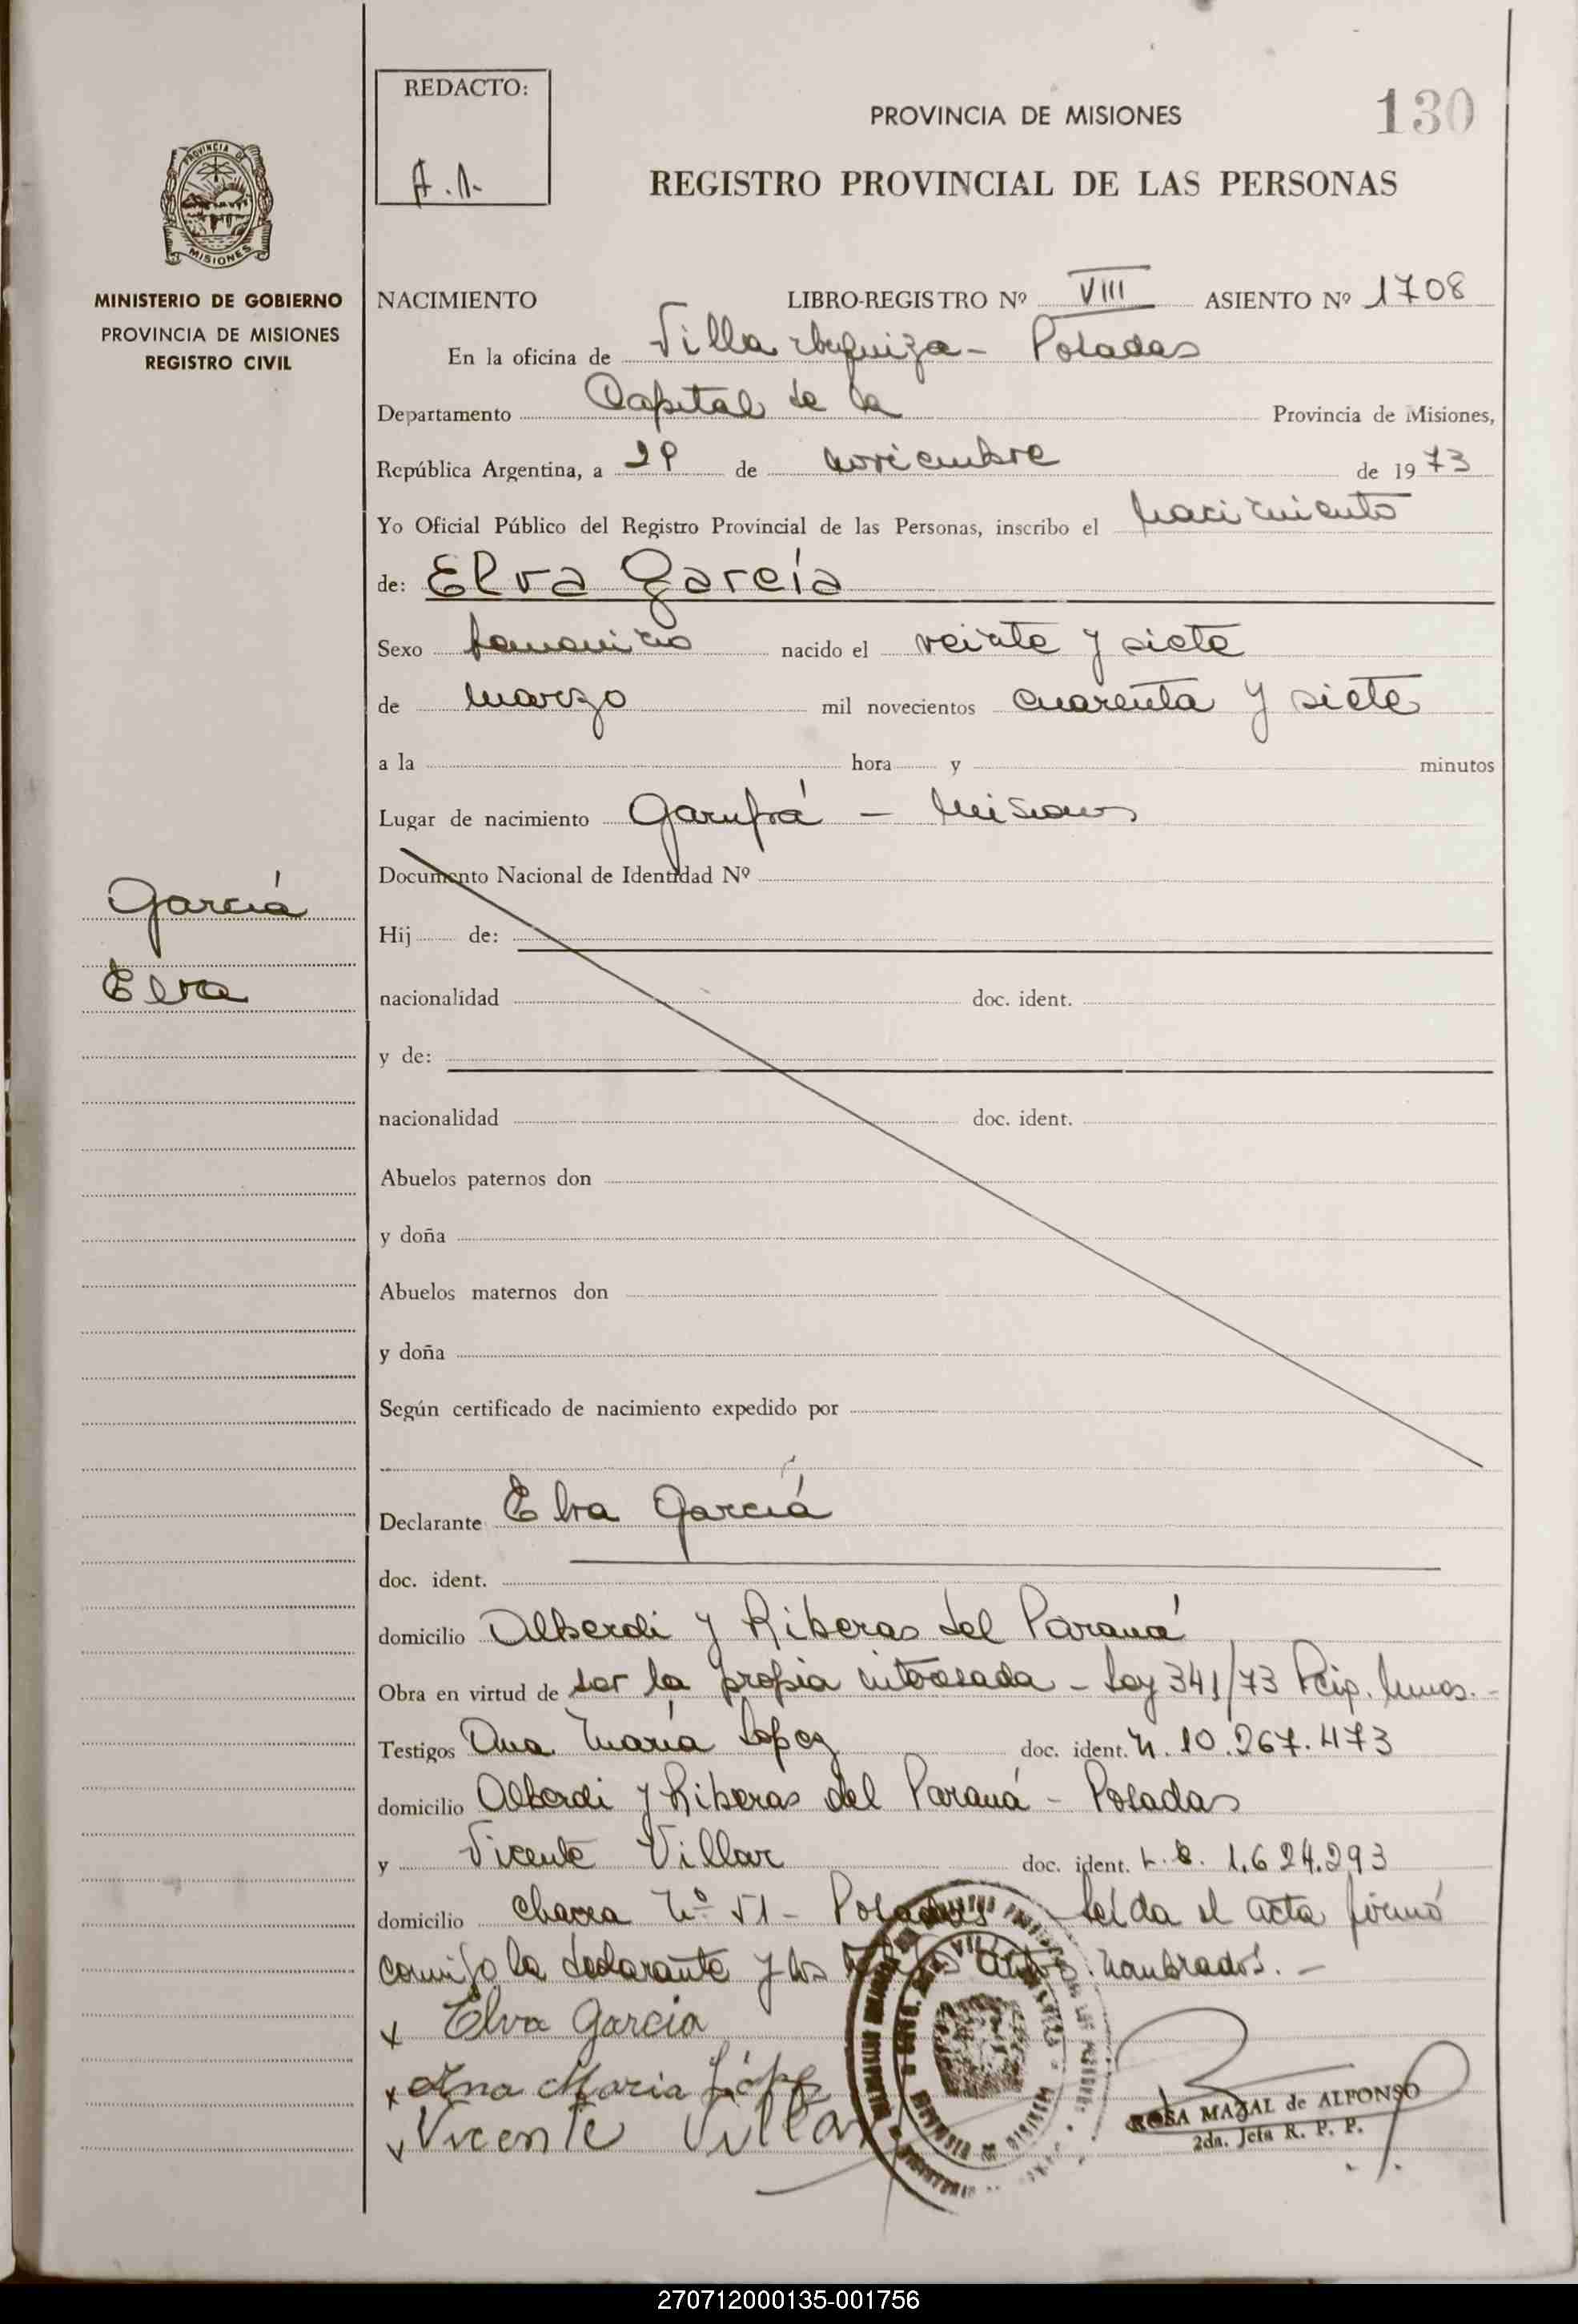 REDACTO:
A.N.
130
PROVINCIA DE MISIONES
REGISTRO PROVINCIAL DE LAS PERSONAS
PROVINCIA DE
MISIONES
MINISTERIO DE GOBIERNO
PROVINCIA DE MISIONES
REGISTRO CIVIL
García
Elva
NACIMIENTO LIBRO-REGISTRO Nº VIII ASIENTO Nº 1708
En la oficina de Villa Urquiza - Posadas
Departamento Capital de la Provincia de Misiones,
República Argentina, a 29 de noviembre de 1973
Yo Oficial Público del Registro Provincial de las Personas, inscribo el nacimiento
de: Elva García
Sexo femenino nacido el veinte y siete
de marzo mil novecientos cuarenta y siete
a la hora y minutos
Lugar de nacimiento Garupá - Misiones
Documento Nacional de Identidad Nº
Hij de:
nacionalidad doc. ident.
y de:
nacionalidad doc. ident.
Abuelos paternos don
y doña
Abuelos maternos don
y doña
Según certificado de nacimiento expedido por
Declarante Elva García
doc. ident.
domicilio Alberdi y Riberas del Paraná
Obra en virtud de ser la propia interesada - Ley 341/73
Testigos Ana María López doc. ident. N. 10.267.473
domicilio Alberdi y Riberas del Paraná - Posadas
y Vicente Villar doc. ident. L.E. 1.624.293
domicilio Chacra Nº 51 - Posadas - Leída el acta firmó
conmigo la declarante y los nombrados. -
x Elva Garcia
x Ana Maria López
x Vicente Villar
ROSA MAZAL de ALFONSO
2da. Jefa R. P. P.
270712000135-001756